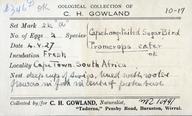 OOLOGICAL COLLECTION OF
C. H. GOWLAND
10-17
Set Mark 2k "a"
No. of Eggs 2 Species Cape Longtailed Sugar Bird
Date 4.4.27 Promerops cafer
Incubation Fresh
Locality Cape Town, South Africa
Nest deep cup of twigs, lined with
flowers in fork of protea
Collected by for C. H. GOWLAND, Naturalist,
"Tadorna," Pensby Road, Barnston, Wirral.